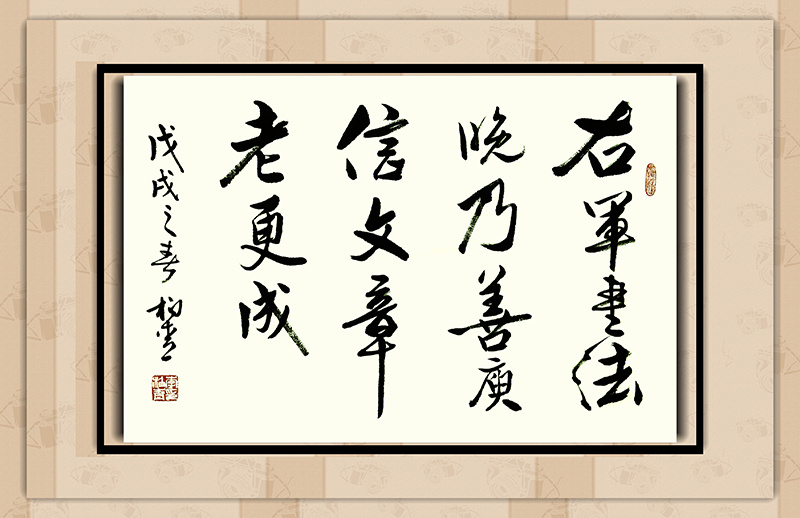 右軍書法
晚乃善庾
信文章
老更成
戊戌之春